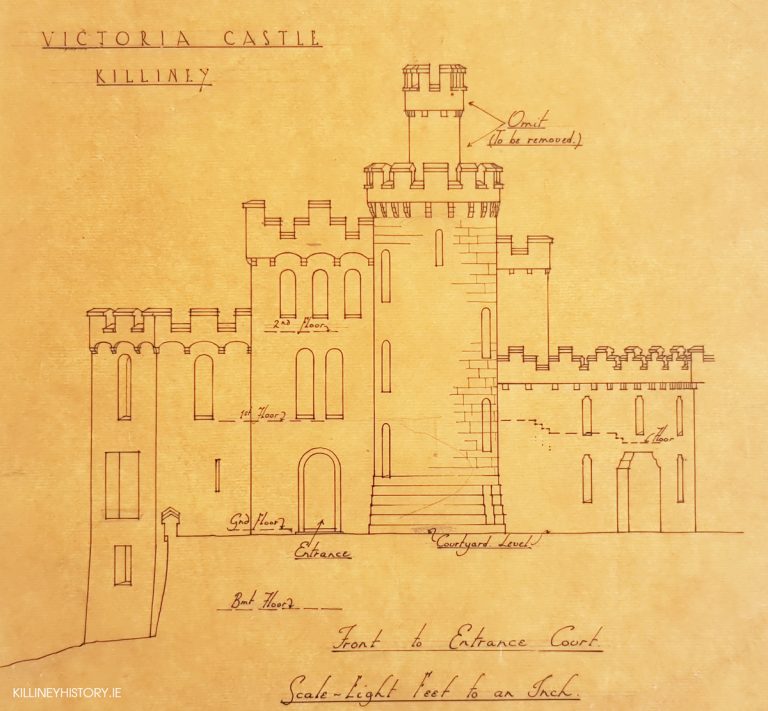 VICTORIA CASTLE
KILLINEY
Omit
(To be removed.)
2nd Floor
1st Floor
Floor
Gnd Floor
Entrance
Courtyard Level
Bmt Floor
Front to Entrance Court.
Scale - Eight Feet to an Inch.
KILLINEYHISTORY.IE